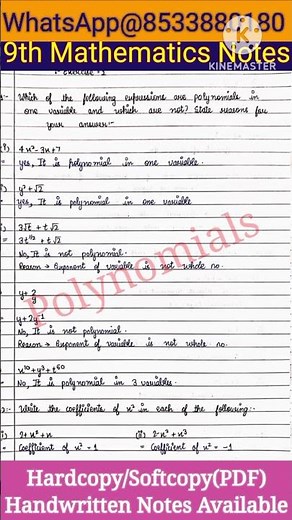 WhatsApp@8533881180
9th Mathematics Notes
KINEMASTER
Exercise
Which of the following expressions are polynomials in
one variable and which are not? State reasons for
your answer:-
4x²-3x+7
yes, It is polynomial in one variable.
y²+√2
yes, It is polynomial in one variable
3√t + t√2
3t^1/2 + t√2
No, It is not polynomial.
Reason → Exponent of variable is not whole no.
Polynomials
y+2/y
y+2y⁻¹
No, It is not polynomial.
Reason → Exponent of variable is not whole no.
x¹⁰+y³+t⁵⁰
No, It is polynomial in 3 variables.
Write the coefficients of x² in each of the following:-
2+x²+x (ii) 2-x²+x³
Coefficient of x² = 1 = Coefficient of x² = -1
Hardcopy/Softcopy(PDF)
Handwritten Notes Available